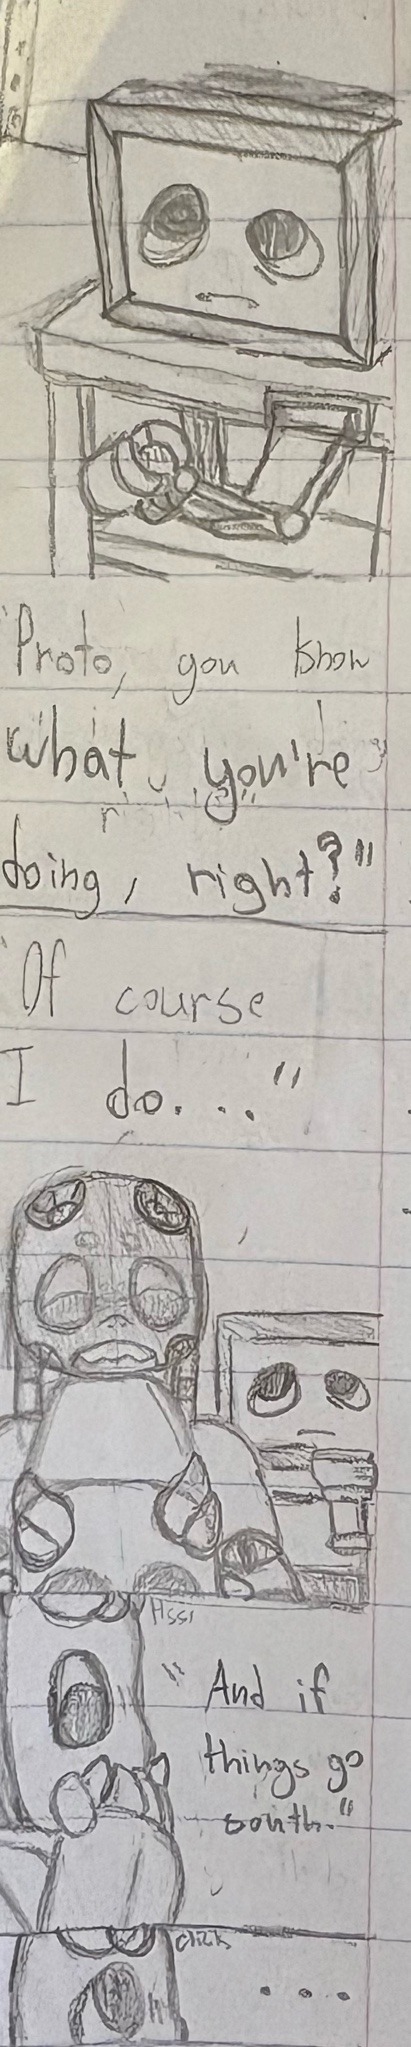 "Proto, you know
what you're
doing, right?"
"Of course
I do...."
Hss
" And if
things go
south."
click
....